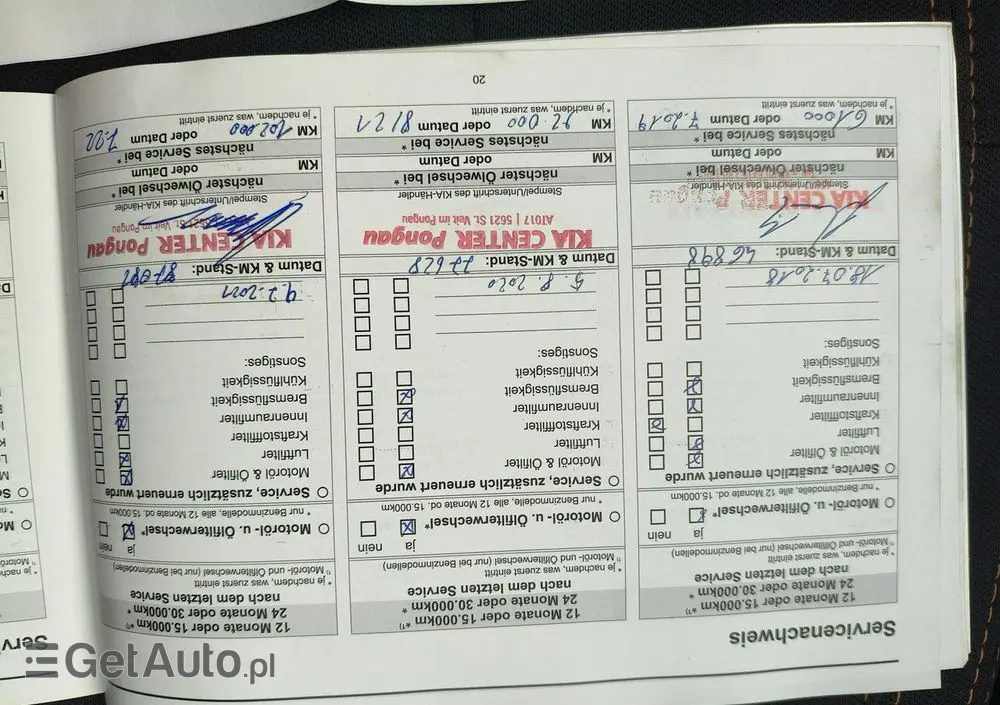 Servicenachweis
12 Monate oder 15.000km *¹⁾
24 Monate oder 30.000km *
nach dem letzten Service
* je nachdem, was zuerst eintritt
¹⁾ Motoröl- und Ölfilterwechsel (nur bei Benzinmodellen)
ja nein
Motoröl- u. Ölfilterwechsel*
* nur Benzinmodelle, alle 12 Monate od. 15.000km
Service, zusätzlich erneuert wurde
Motoröl & Ölfilter
Luftfilter
Kraftstofffilter
Innenraumfilter
Bremsflüssigkeit
Kühlflüssigkeit
Sonstiges:
18.07.2018
Datum & KM-Stand: 46898
KIA CENTER Pongau
Stempel/Unterschrift des KIA-Händler
nächster Ölwechsel bei *
KM oder Datum
nächstes Service bei *
KM 61000 oder Datum 7.2019
* je nachdem, was zuerst eintritt
12 Monate oder 15.000km *¹⁾
24 Monate oder 30.000km *
nach dem letzten Service
* je nachdem, was zuerst eintritt
¹⁾ Motoröl- und Ölfilterwechsel (nur bei Benzinmodellen)
ja nein
Motoröl- u. Ölfilterwechsel*
* nur Benzinmodelle, alle 12 Monate od. 15.000km
Service, zusätzlich erneuert wurde
Motoröl & Ölfilter
Luftfilter
Kraftstofffilter
Innenraumfilter
Bremsflüssigkeit
Kühlflüssigkeit
Sonstiges:
5.8.2020
Datum & KM-Stand: 77628
KIA CENTER Pongau
AT017 | 5621 St. Veit im Pongau
Stempel/Unterschrift des KIA-Händler
nächster Ölwechsel bei *
KM oder Datum
nächstes Service bei *
KM 92000 oder Datum 8/21
* je nachdem, was zuerst eintritt
12 Monate oder 15.000km *¹⁾
24 Monate oder 30.000km *
nach dem letzten Service
* je nachdem, was zuerst eintritt
¹⁾ Motoröl- und Ölfilterwechsel (nur bei Benzinmodellen)
ja nein
Motoröl- u. Ölfilterwechsel*
* nur Benzinmodelle, alle 12 Monate od. 15.000km
Service, zusätzlich erneuert wurde
Motoröl & Ölfilter
Luftfilter
Kraftstofffilter
Innenraumfilter
Bremsflüssigkeit
Kühlflüssigkeit
Sonstiges:
Datum & KM-Stand:
KIA CENTER Pongau
5621 St. Veit im Pongau
Stempel/Unterschrift des KIA-Händler
nächster Ölwechsel bei *
KM oder Datum
nächstes Service bei *
KM 102.000 oder Datum 7.22
* je nachdem, was zuerst eintritt
20
GetAuto.pl